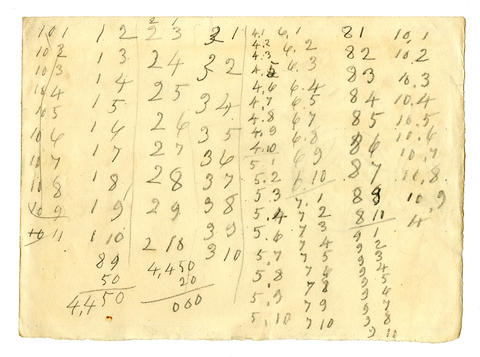 10 1
10 2
10 3
10 4
10 5
10 6
10 7
10 8
10 9
10 11
1 2
1 3
1 4
1 5
1 6
1 7
1 8
1 9
1 10
89
50
4,450
2 1
2 3
2 4
2 5
2 6
2 7
2 8
2 9
2 10
4,450
20
000
3 1
3 2
3 4
3 5
3 6
3 7
3 8
3 9
3 10
4.1
4.2
4.3
4.5
4.6
4.7
4.8
4.9
4.10
5.1
5.2
5.3
5.4
5.6
5.7
5.8
5.9
5.10
6.1
6.2
6.3
6.4
6.5
6.7
6.8
6 9
6.10
7.1
7 2
7 3
7 4
7 5
7 6
7 8
7 9
7 10
8 1
8 2
8 3
8 4
8 5
8 6
8 7
8 8
8 10
9 1
9 2
9 3
9 4
9 5
9 7
9 8
9 10
10.1
10.2
10.3
10.4
10.5
10.6
10.7
10.8
10.9
4.